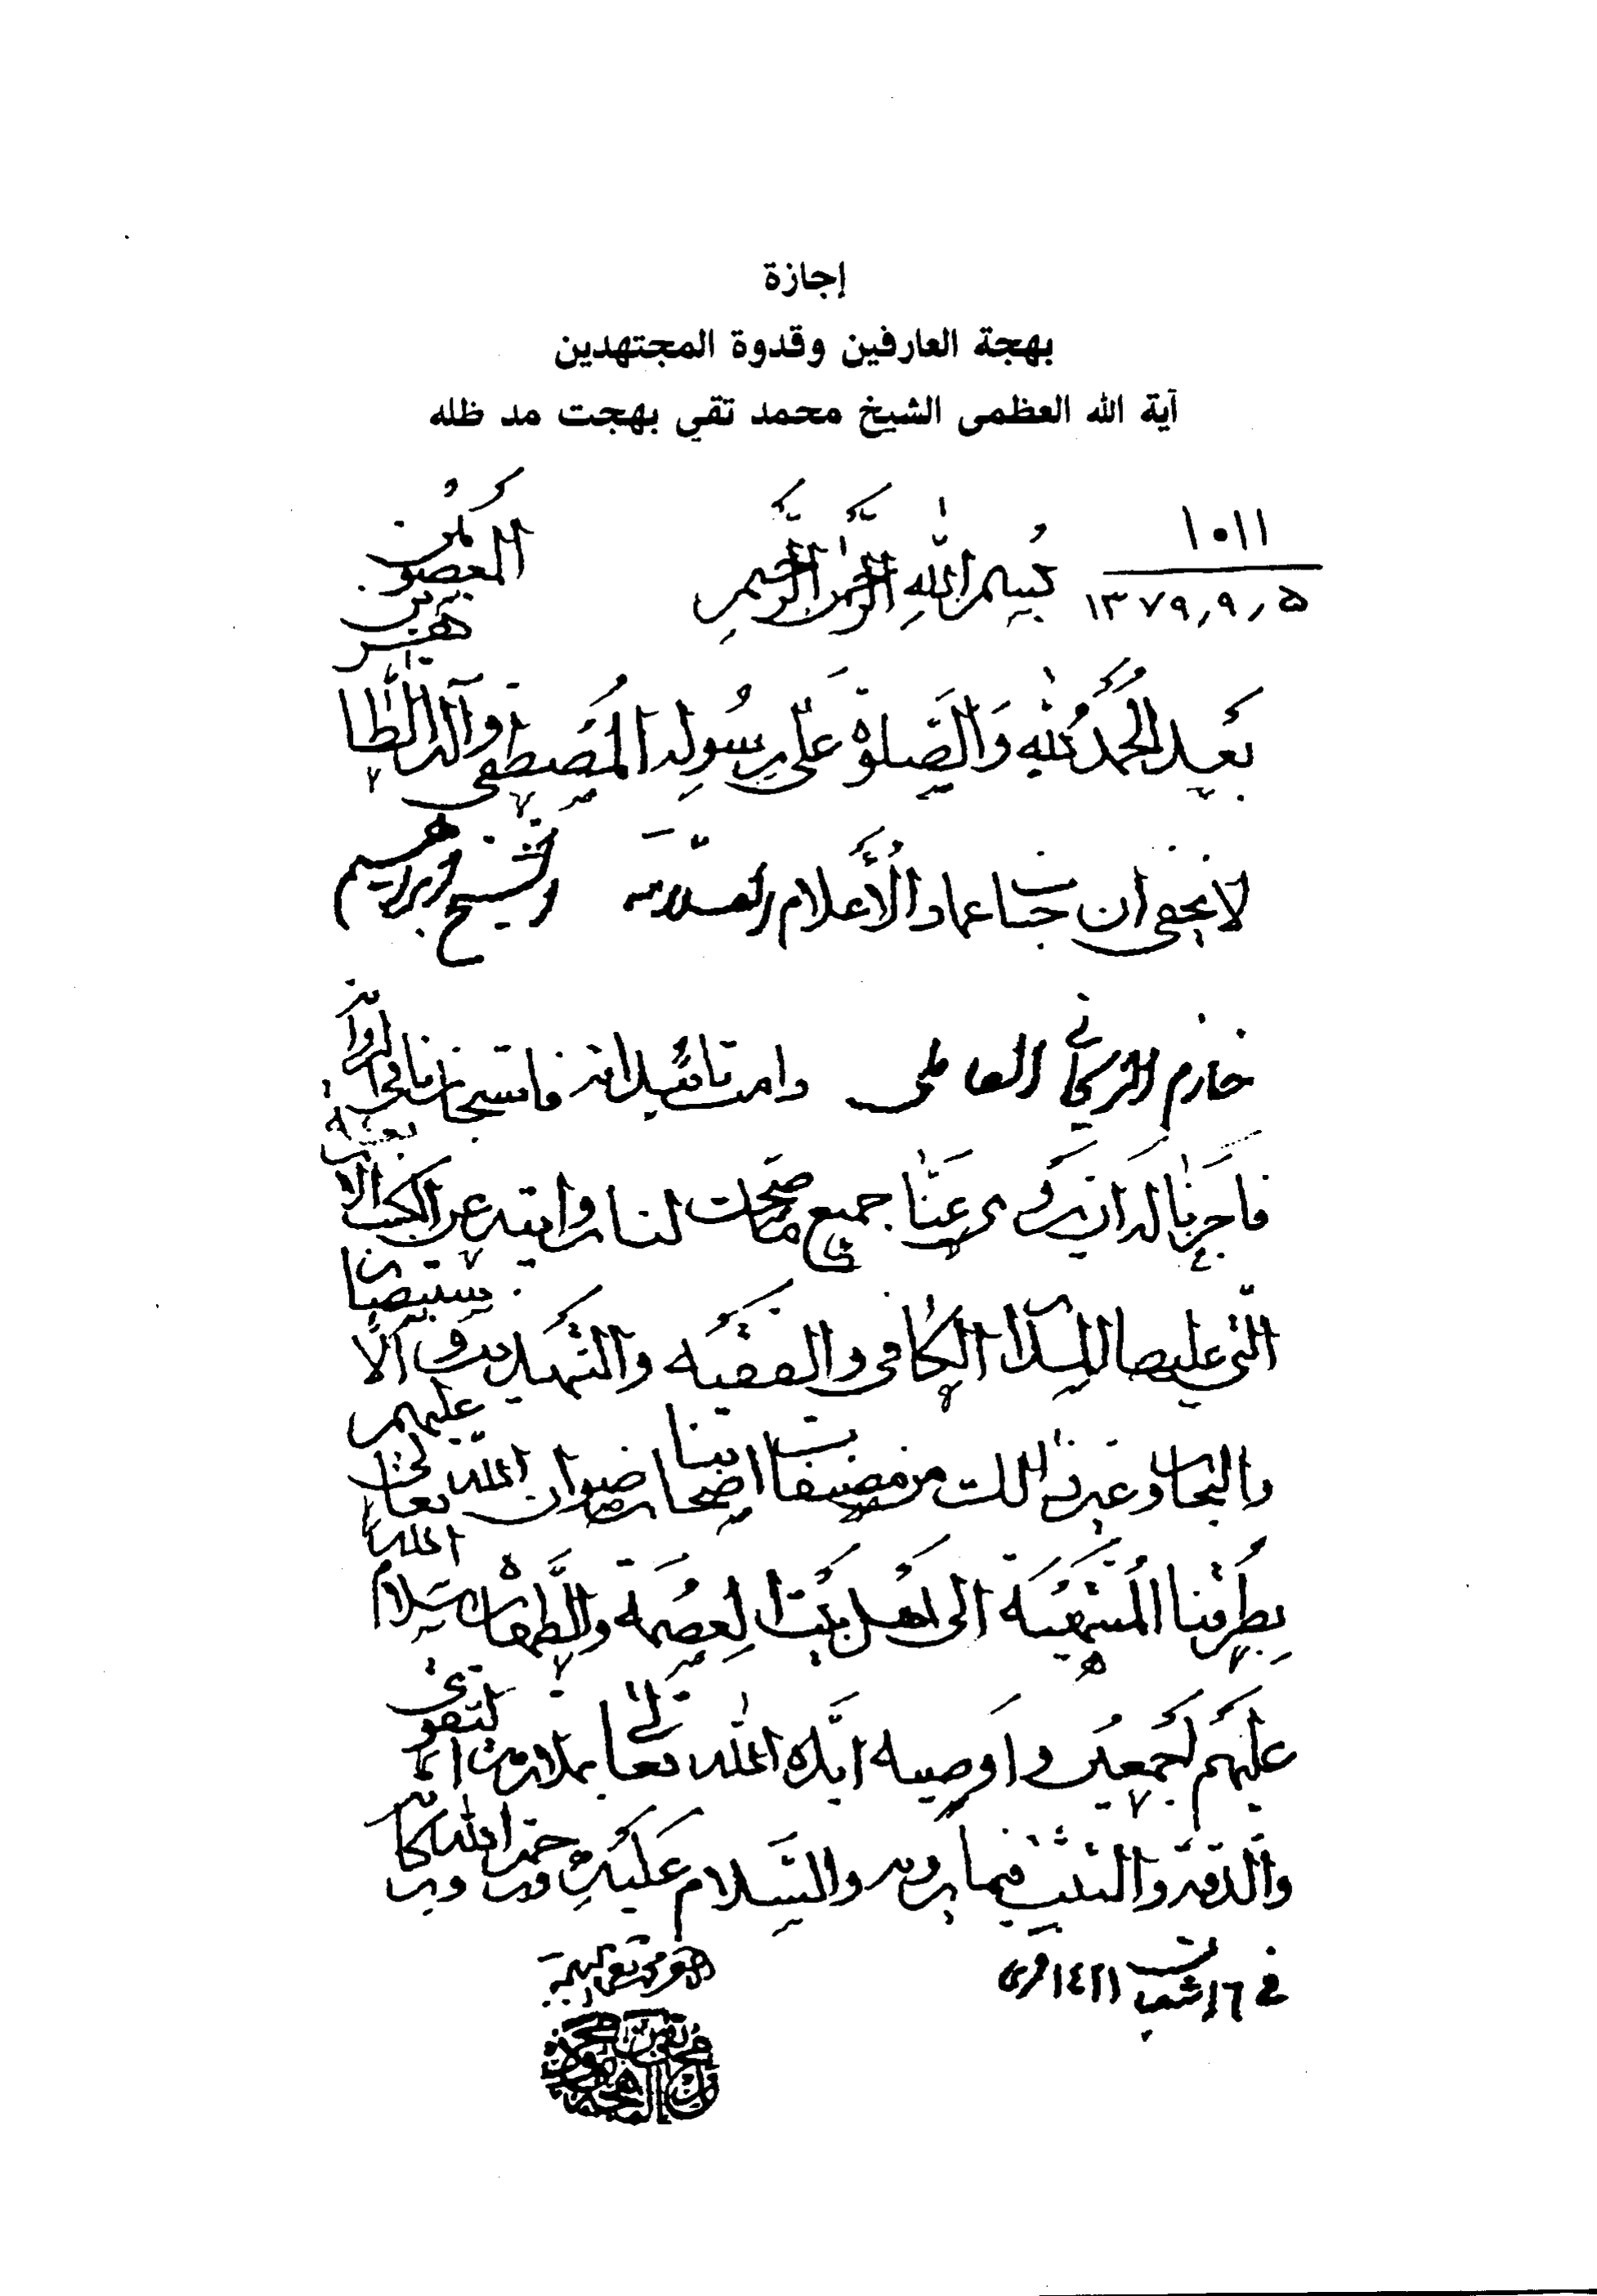 إجازة
بهجة العارفين وقدوة المجتهدين
آية الله العظمى الشيخ محمد تقي بهجت مد ظله
١٠١١
١٣٧٩٫٩٫٥
بسم الله الرحمن الرحيم
بعد الحمد لله والصلوة على رسوله المصطفى وآله الطاهرين المعصومين
لا يخفى أن جناب عماد الأعلام العلامة الشيخ ابراهيم
خازم التركاني العاملي دامت تأييداته فاستجازنا في الرواية
فاجزنا له ان يروى عنا جميع ما صحت لنا روايته عن الكتب الاربعة
التي عليها المدار الكافى والفقيه والتهذيب و الاستبصار
والبحار وغير ذلك من مصنفات اصحابنا رضوان الله تعالى عليهم
بطرقنا المنتهية الى اهل بيت العصمة والطهارة سلام الله
عليهم اجمعين و اوصيه ايده الله تعالى بملازمة التقوى
والدقة والتثبت فيما يرويه والسلام عليكم ورحمة الله وبركاته
في ١٦ شعبان ١٤٢١